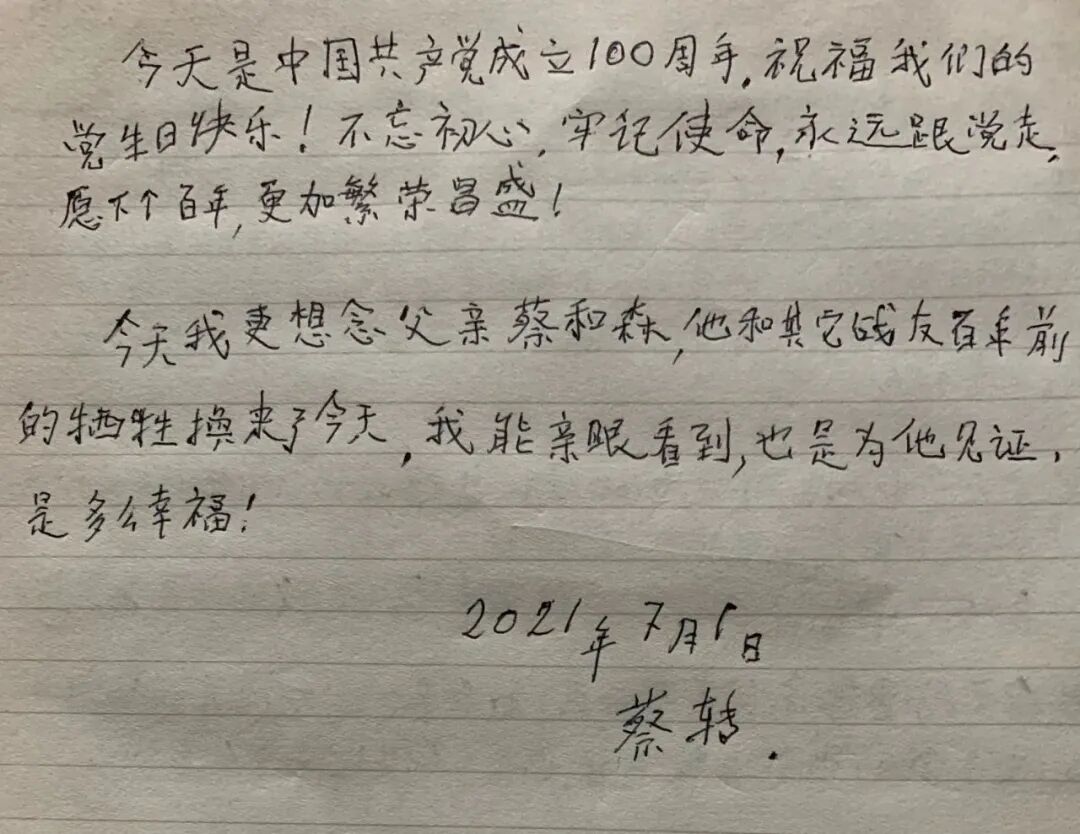 今天是中国共产党成立100周年,祝福我们的
党生日快乐!不忘初心,牢记使命,永远跟党走,
愿下个百年,更加繁荣昌盛!
今天我更想念父亲蔡和森,他和其它战友百年前
的牺牲换来了今天,我能亲眼看到,也是为他见证,
是多么幸福!
2021年7月1日
蔡转.